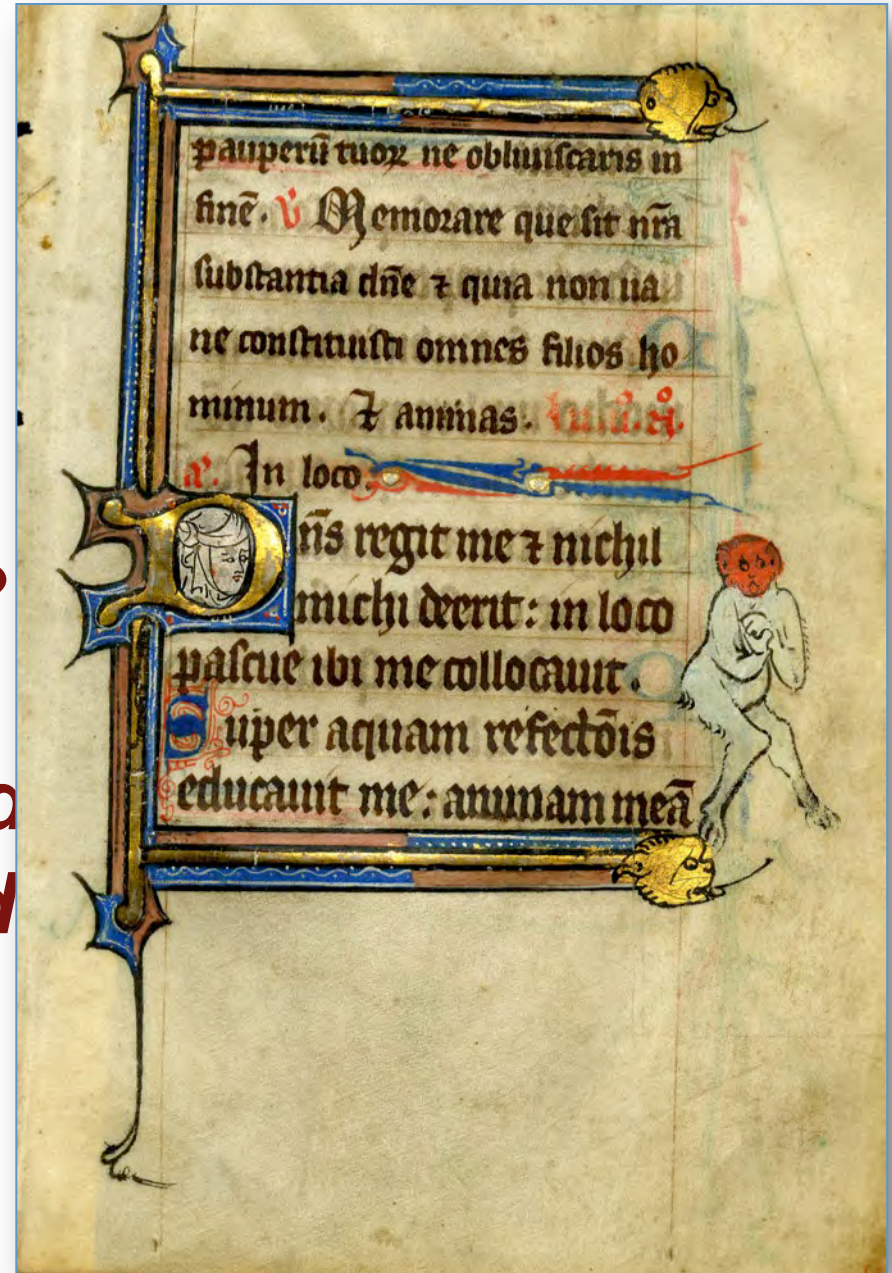 pauperū tuoꝝ ne obliuiscaris in
finē. ℣ Memorare que sit nr̄a
substantia dn̄e ⁊ quia non ua
ne constituisti omnes filios ho
minum. ⁊ animas.
a. In loco
Dn̄s regit me ⁊ nichil
michi deerit: in loco
pascue ibi me collocauit.
Super aquam refectōis
educauit me: animam meā